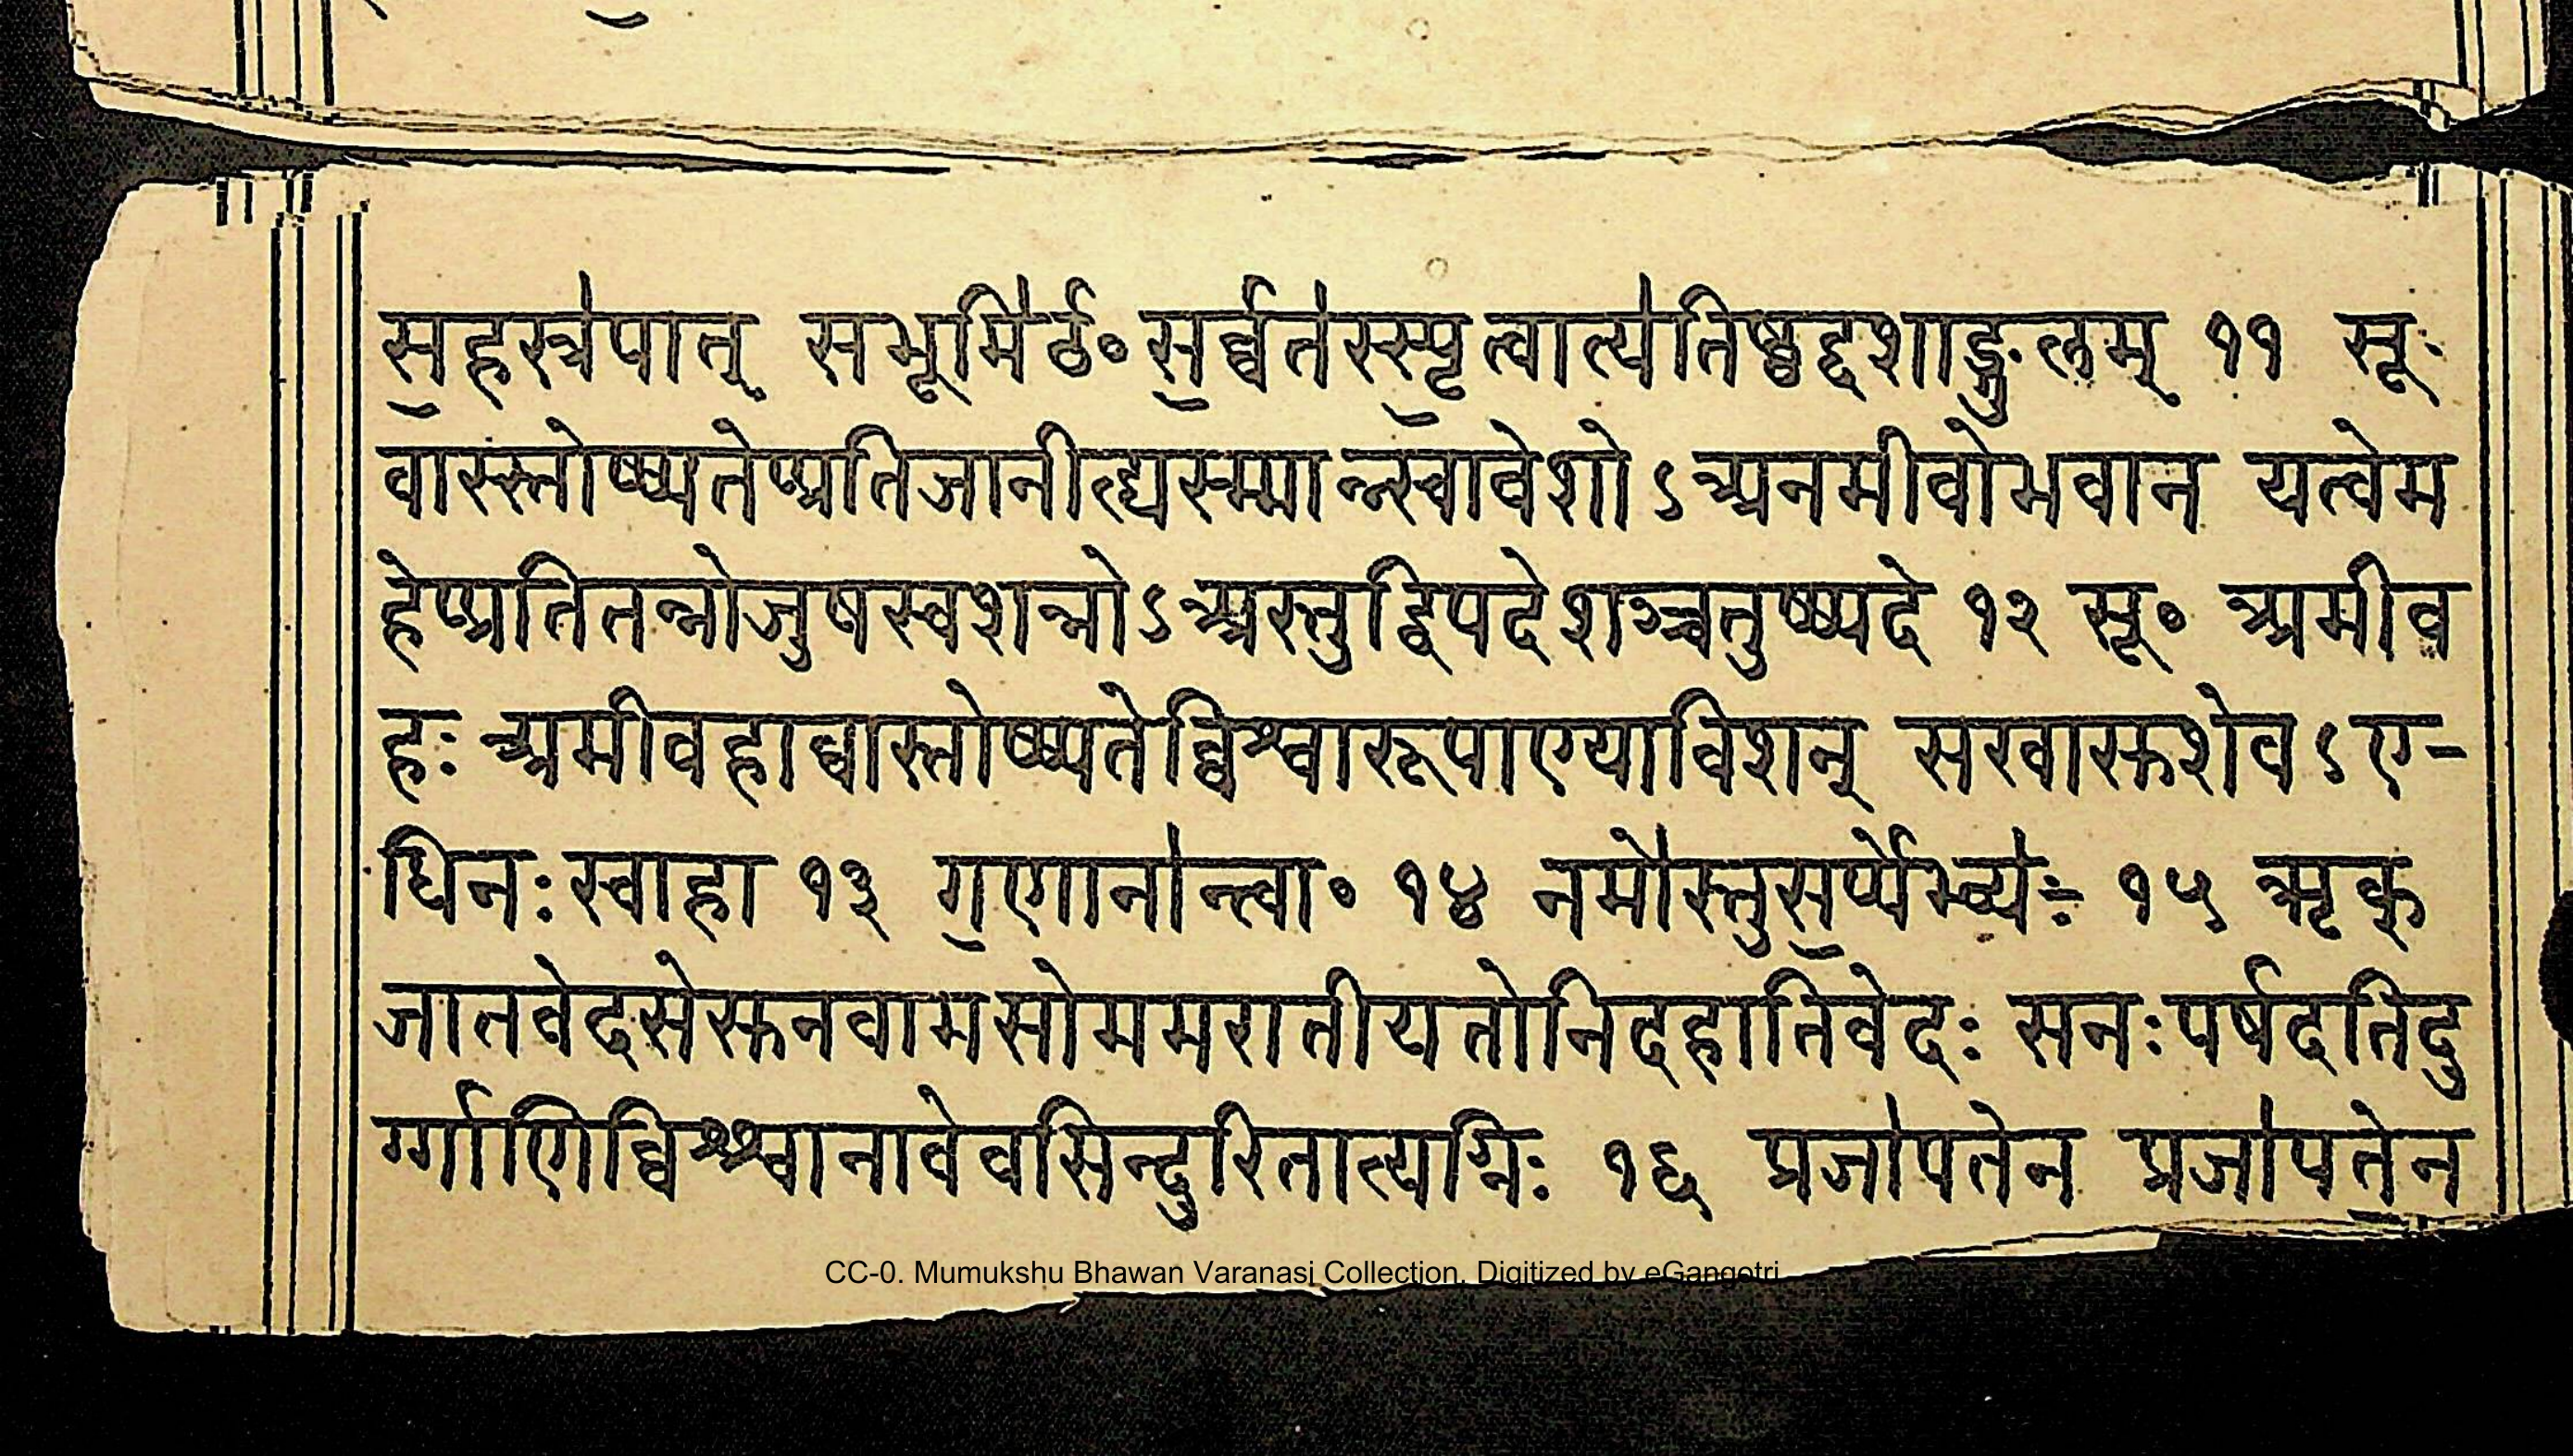 स॒हस्त्र॑पात् सभूमि॑ᳬ᳭स॒र्व्वत॑स्स्पृ॒त्वात्य॑तिष्ठद्दशाङ्गुलम् ११ सू॰
वास्स्तोष्ष्पतेप्प्रतिजानीह्यस्म्मान्न्स्वावेशोऽअनमीवोभवान यत्वेम
हेप्प्रतितन्नोजुषस्वशन्नोऽअस्तुद्विपदेशञ्चतुष्ष्पदे १२ सू॰ अमीव
हः अमीवहाव्वास्तोष्ष्पतेव्विश्वारूपाण्याविशन् सखासुशेवऽए-
धिनः स्वाहा १३ ग॒णाना॑न्त्वा॰ १४ नमो॑स्तुस॒र्प्पेभ्यः॑ १५ ऋक्
जातवेदसेसुनवामसोममरातीयतोनिदहातिवेदः सनःपर्षदतिदु
र्ग्गाणिव्विश्श्वानावेवसिन्दुरितात्यग्निः १६ प्रजा॑पतेन प्रजा॑पते॒न
CC-0. Mumukshu Bhawan Varanasi Collection. Digitized by eGangotri